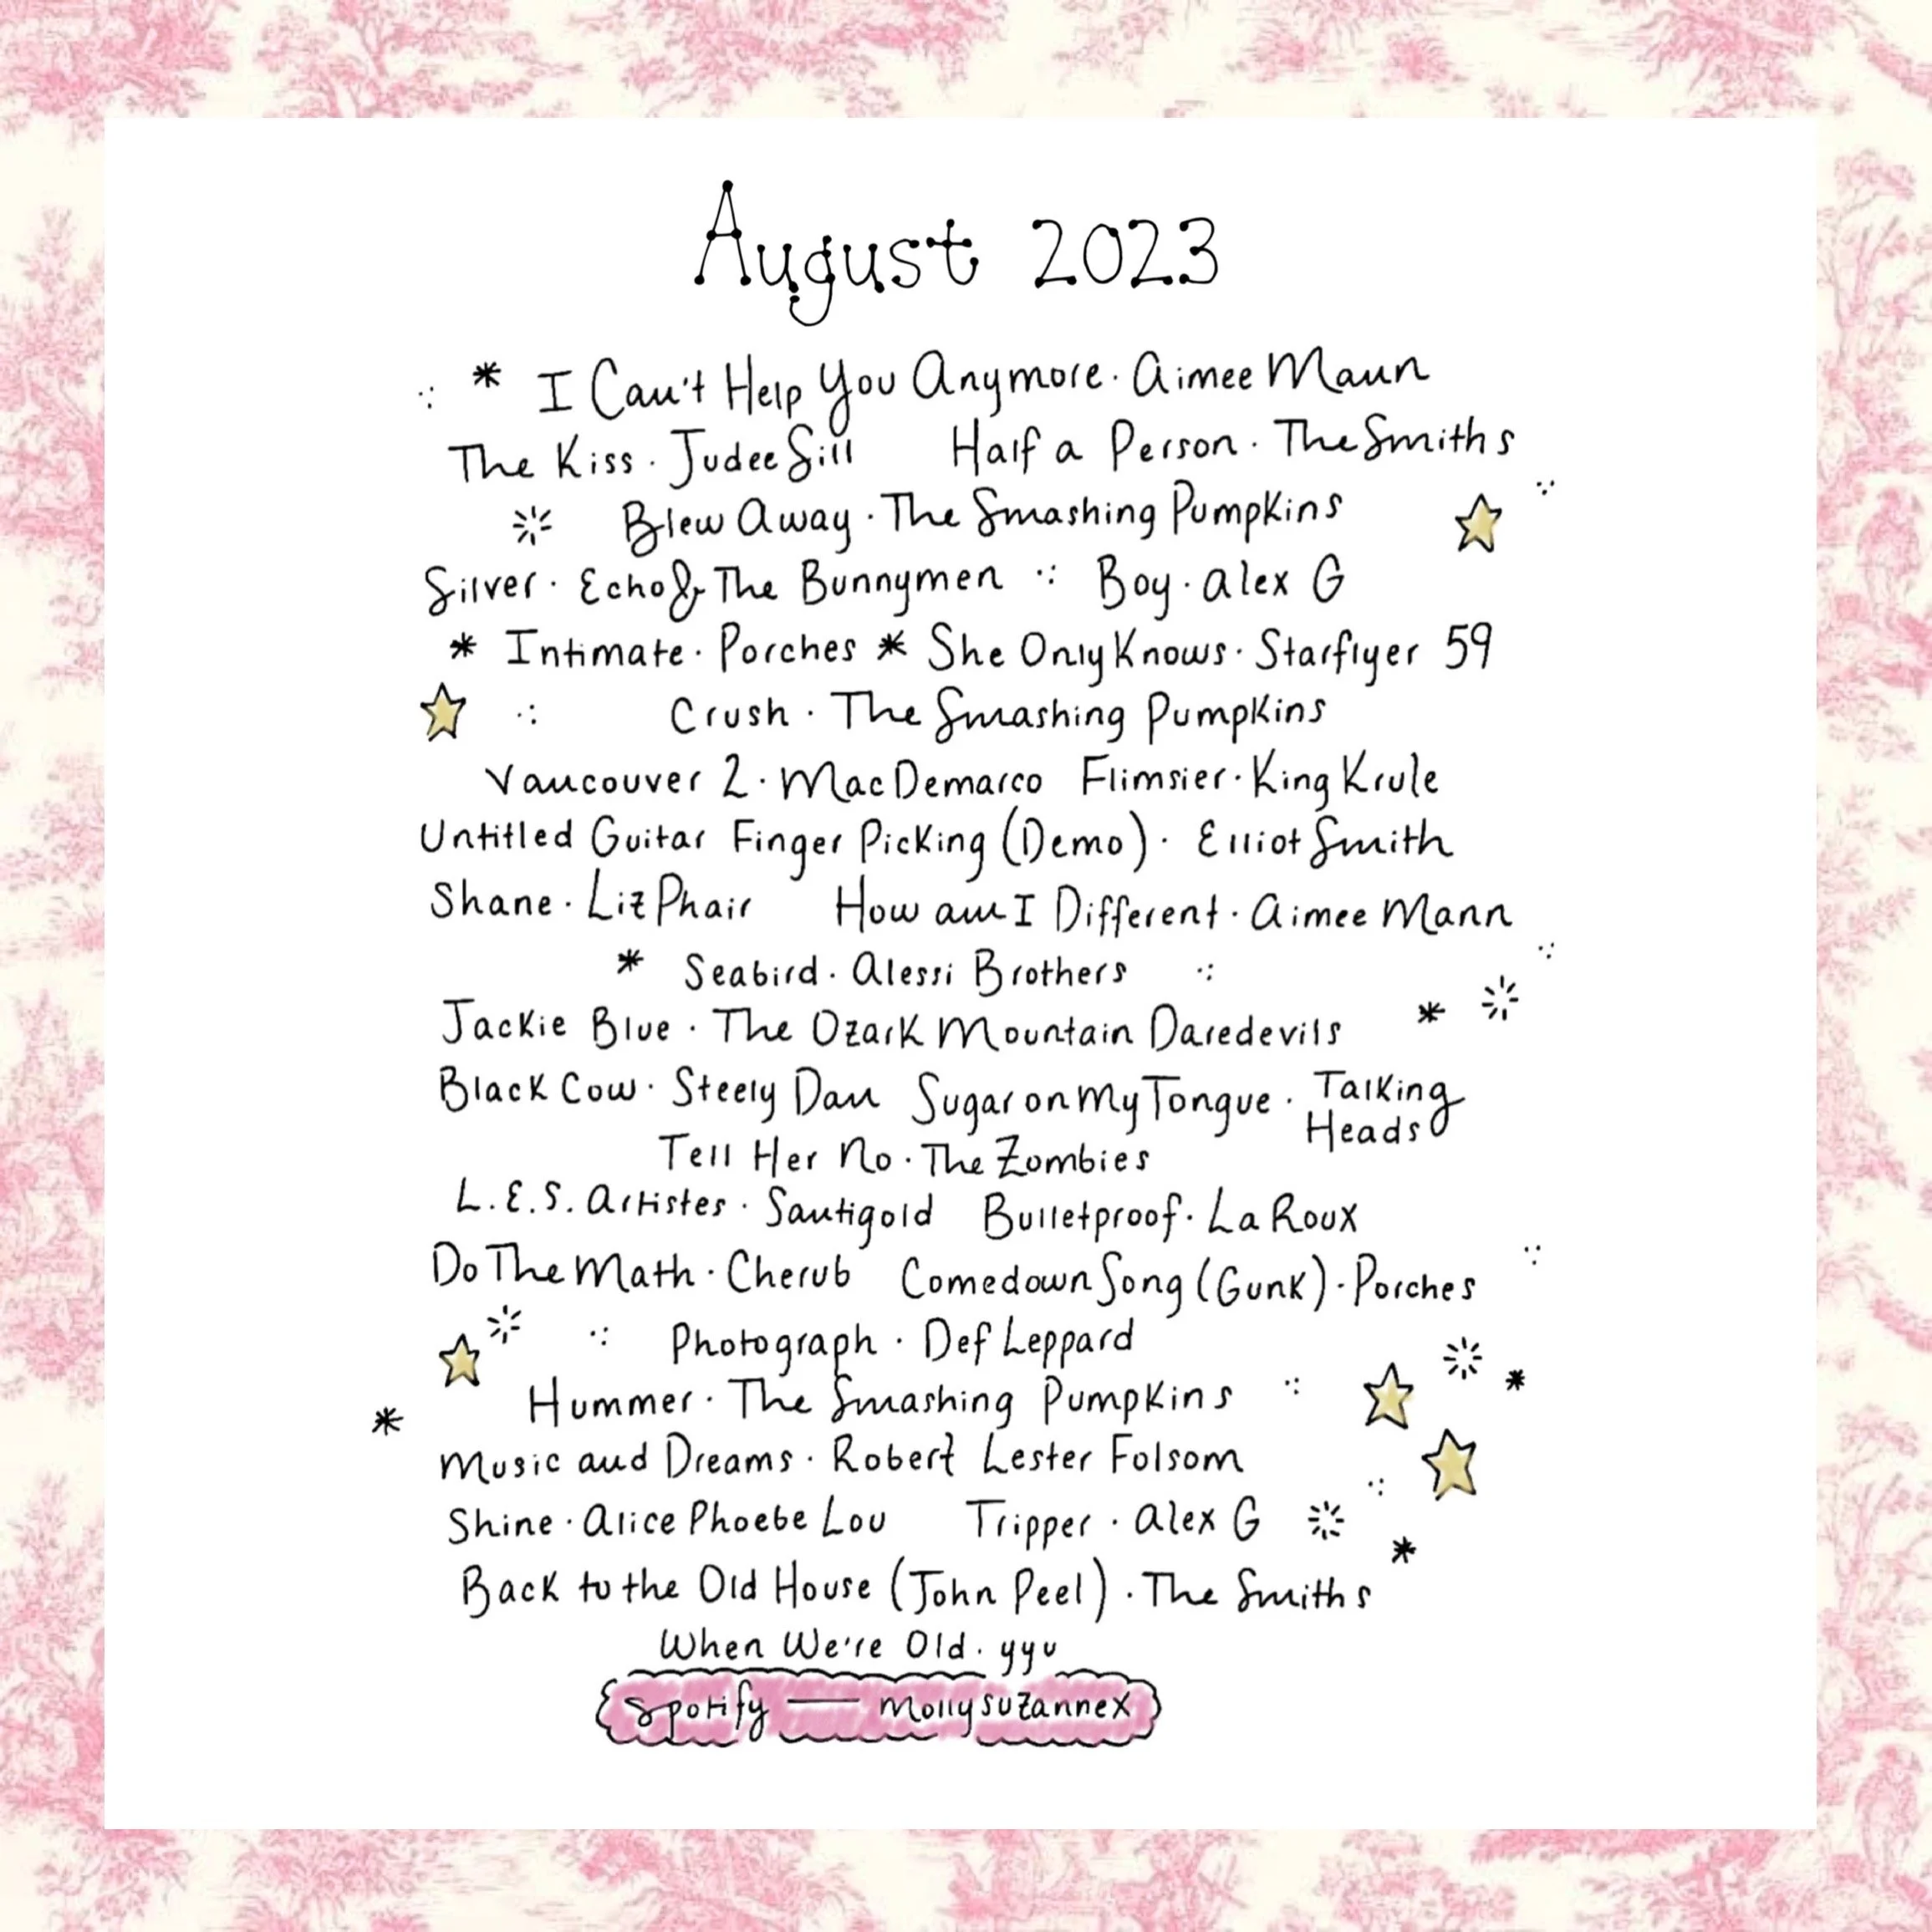 August 2023
I Can't Help You Anymore · Aimee Mann
The Kiss · Judee Sill Half a Person · The Smiths
Blew Away · The Smashing Pumpkins
Silver · Echo & The Bunnymen Boy · Alex G
* Intimate · Porches * She Only Knows · Starflyer 59
Crush · The Smashing Pumpkins
Vancouver 2 · Mac Demarco Flimsier · King Krule
Untitled Guitar Finger Picking (Demo) · Elliot Smith
Shane · Liz Phair How am I Different · Aimee Mann
* Seabird · Alessi Brothers
Jackie Blue · The Ozark Mountain Daredevils
Black Cow · Steely Dan Sugar on My Tongue · Talking Heads
Tell Her No · The Zombies
L.E.S. Artistes · Santigold Bulletproof · La Roux
Do The Math · Cherub Comedown Song (Gunk) · Porches
Photograph · Def Leppard
Hummer · The Smashing Pumpkins
Music and Dreams · Robert Lester Folsom
Shine · Alice Phoebe Lou Tripper · Alex G
Back to the Old House (John Peel) · The Smiths
When We're Old · yyu
Spotify — mollysuzannex